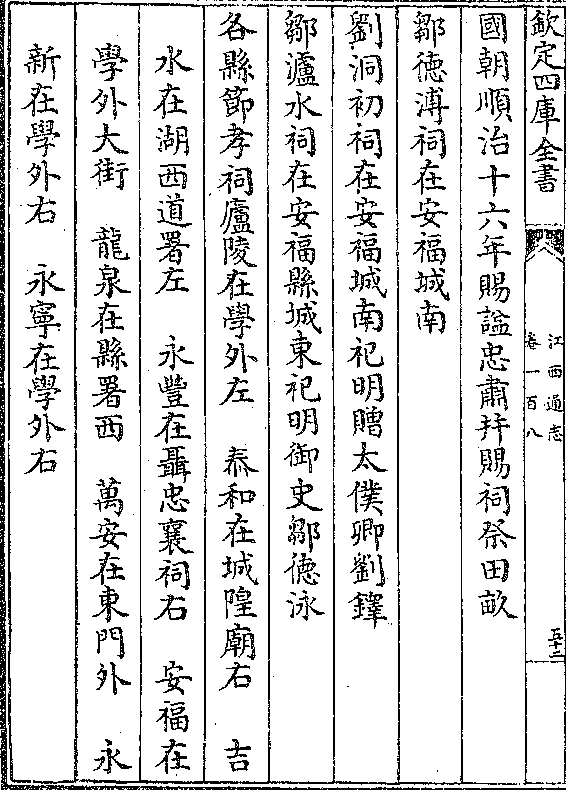 欽定四庫全書
江西通志
卷一百八
五十二
國朝順治十六年賜諡忠肅并賜祠祭田畝
鄒德溥祠在安福城南
劉洞初祠在安福城南祀明贈太僕卿劉鐸
鄒瀘水祠在安福縣城東祀明御史鄒德泳
各縣節孝祠廬陵在學外左 泰和在城隍廟右 吉
水在湖西道署左 永豐在聶忠襄祠右 安福在
學外大街 龍泉在縣署西 萬安在東門外 永
新在學外右 永寧在學外右